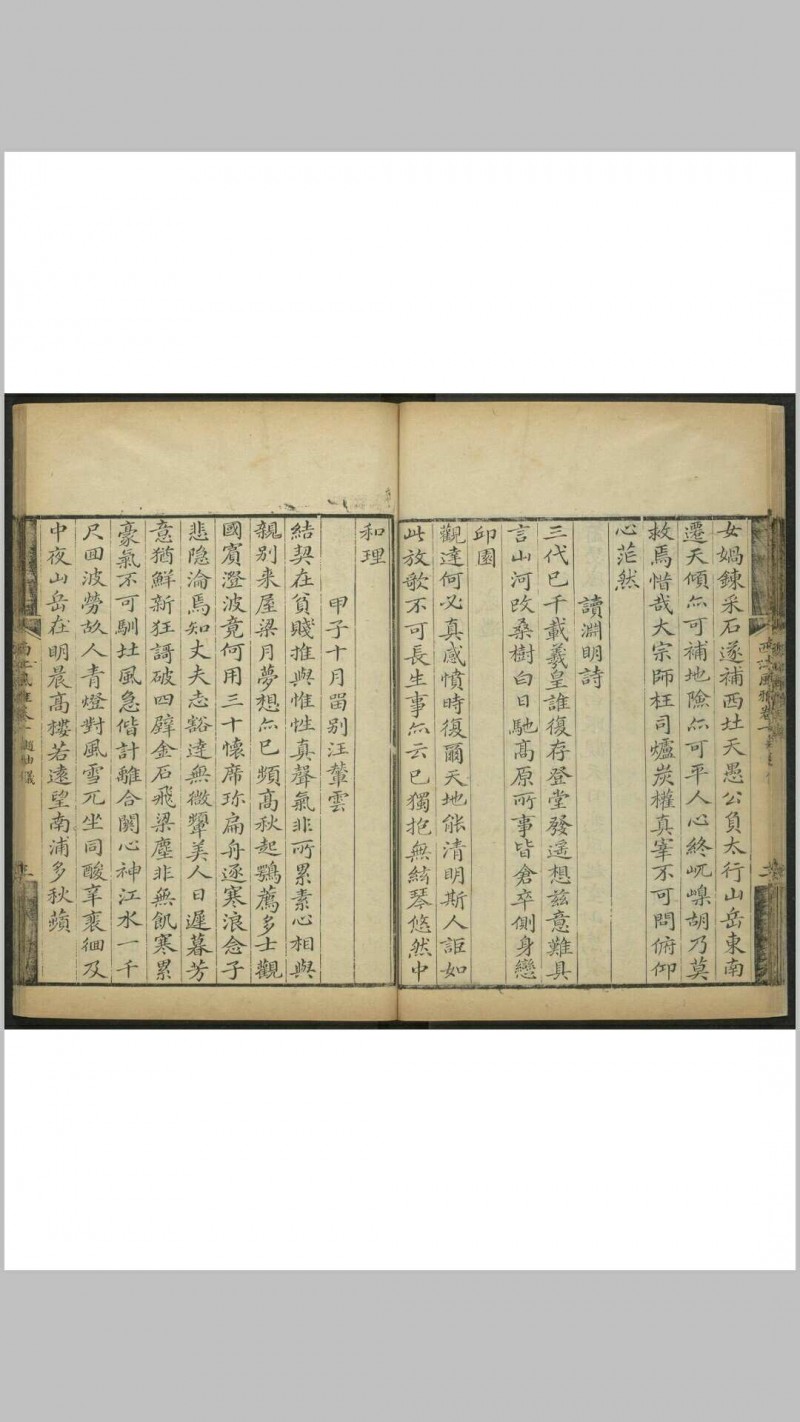 女媧鍊采石遂補西北天愚公負太行山岳東南
遷天傾尓可補地險尓可平人心終屼嵲胡乃莫
救焉惜哉大宗師枉司爐炭權真宰不可問俯仰
心茫然
讀淵明詩
三代已千載羲皇誰復存登堂發遥想兹意難具
言山河改桑樹白日馳髙原所事皆倉卒側身戀
邱園
觀達何必真感憤時復爾天地能清明斯人詎如
此放歌不可長生事尓云已獨抱無絃琴悠然中
和理
甲子十月畱别汪輦雲
結契在貧賤推與惟性真聲氣非所累素心相與
親别来屋梁月夢想尓已頻髙秋起鶚薦多士觀
國賓澄波竟何用三十懷席珎扁舟逐寒浪念子
悲隐淪焉知丈夫志豁達無微顰美人日遲暮芳
意猶鮮新狂謌破四壁金石飛梁塵非無飢寒累
豪氣不可馴北風急偕計離合闗心神江水一千
尺回波勞故人青燈對風雪兀坐同酸辛裵徊及
中夜山岳在明晨髙樓若遠望南浦多秋蘋